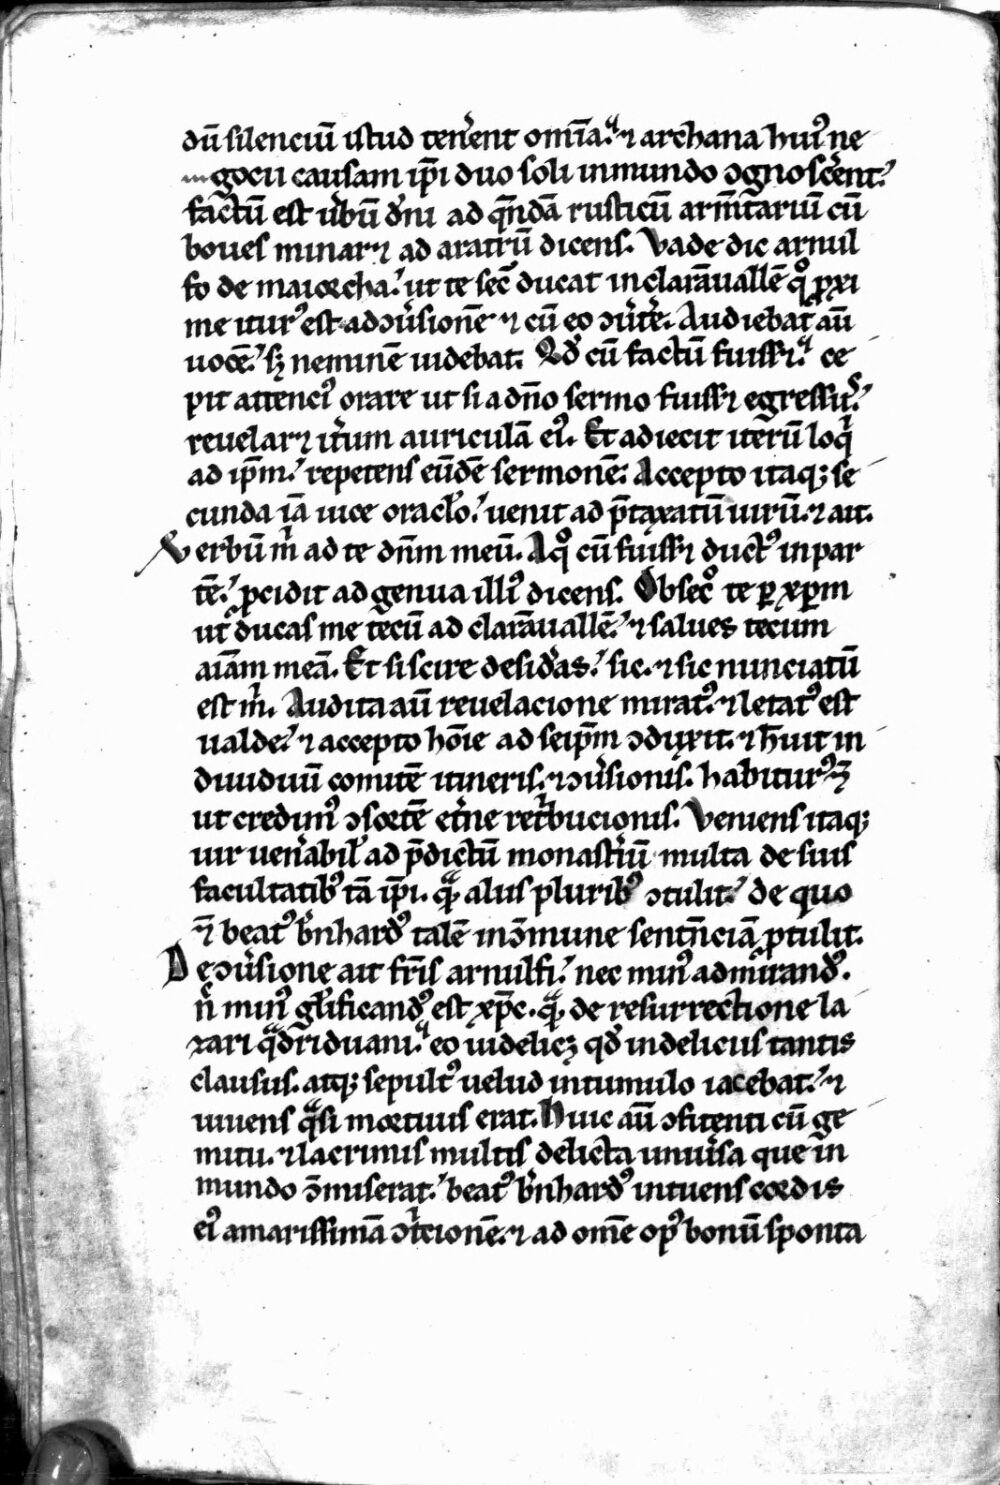 dū silenciū istud ten̄ent om̄ia. ⁊ archana huiꝰ ne
gocii causam ip̄i duo soli in mundo ꝯgnosc̄ent.
factū est ūbū dn̄i ad qn̄dā rusticū armn̄tariū cū
boues minar⁊ ad aratrū dicens. Vade dic arnul
fo de maiorcha. ut te secū ducat in clarāuallē qͦ ꝓxi
me iturꝰ est ad ꝯūsionē ⁊ cū eo ꝯūte͛e. Audiebat aū
uocē. sꝫ neminē uidebat. Qd̕ cū factū fuiss⁊. ce
pit attenciꝰ orare ut si a dn̄o sermo fuiss⁊ egressus.
reuelar⁊ it̄um auriculā eiꝰ. Et adiecit iterū loqͥ
ad ip̄m. repetens eūdē sermonē. Accepto itaqꝫ se
cunda iā uice oraclo̕. uenit ad p̄taxatū uirū. ⁊ ait.
Verbū m̄ ad te dn̄m meū. A qͦ cū fuiss⁊ ductꝰ in par
tē. ꝓcidit ad genua illiꝰ dicens. Obsecͦ te ꝑ xp̄m
ut ducas me tecū ad clarāuallē. ⁊ salues tecum
aīam meā. Et si scire desid̕as. sic. ⁊ sic nunciatū
est m̄. Audita aū reuelacione miratꝰ. ⁊ letatꝰ est
ualde. ⁊ accepto hoīe ad seip̄m ꝯduxit. ⁊ h̄uit in
diuiduū comitē itineris. ⁊ ꝯūsionis. habiturꝰ
ut credimꝰ ꝯsortē et̄ne ret̄bucionis. Veniens itaqꝫ
uir uen̄abil̕ ad p̄dictū monast̄iū multa de suis
facultatibꝰ tā ip̄i. qᷓ alus pluribꝰ ꝯtulit. de quo
⁊ beatꝰ b̄nhardꝰ talē in ꝯmune sentn̄ciā ꝓtulit.
De ꝯūsione ait fr̄is arnulfi. nec minꝰ admirandꝰ.
n̄ minꝰ gl̄ificandꝰ est xp̄c. qᷓ de resurrectione la
zari qᷓdriduani. eo uidelicꝫ qd̕ in deliciis tantis
clausus. atqꝫ sepultꝰ uelud in tumulo iacebat. ⁊
uiuens qᷓsi mortuus erat. Huic aū ꝯfitenti cū ge
mitu. ⁊ lacrimis multis delicta uniūsa que in
mundo ꝯmiserat. beatꝰ b̄nhardꝰ intuens cordis
eiꝰ amarissimā ꝯtͥcionē. ⁊ ad omē opꝰ bonū sponta